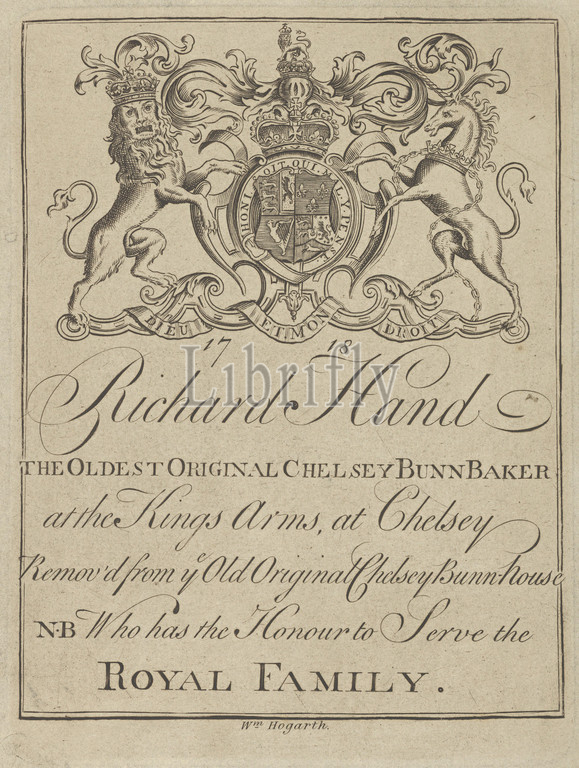 HONI SOIT QUI MAL Y PENSE
DIEU ET MON DROIT
17 18
Richard Hand
THE OLDEST ORIGINAL CHELSEY BUNN BAKER
at the Kings Arms, at Chelsey
Remov'd from yᵉ Old Original Chelsey Bunn-house
N·B Who has the Honour to Serve the
ROYAL FAMILY.
Wᵐ Hogarth.
Librifly